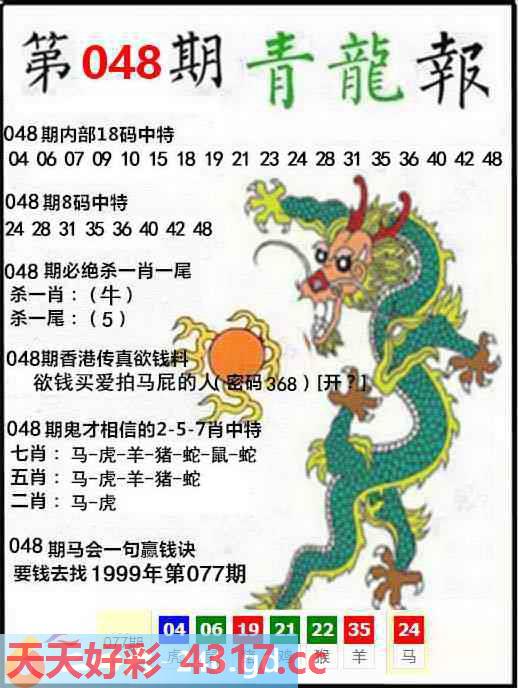 第048期 青龍報
048期内部18码中特
04 06 07 09 10 15 18 19 21 23 24 28 31 35 36 40 42 48
048期8码中特
24 28 31 35 36 40 42 48
048期必绝杀一肖一尾
杀一肖：(牛)
杀一尾：(5)
048期香港传真欲钱料
欲钱买爱拍马屁的人(密码368)[开?]
048期鬼才相信的2-5-7肖中特
七肖：马-虎-羊-猪-蛇-鼠-蛇
五肖：马-虎-羊-猪-蛇
二肖：马-虎
048期马会一句赢钱诀
要钱去找1999年第077期
077期 04 06 19 21 22 35 24
虎 鸡 猴 羊 马
天天好彩 4317.cc